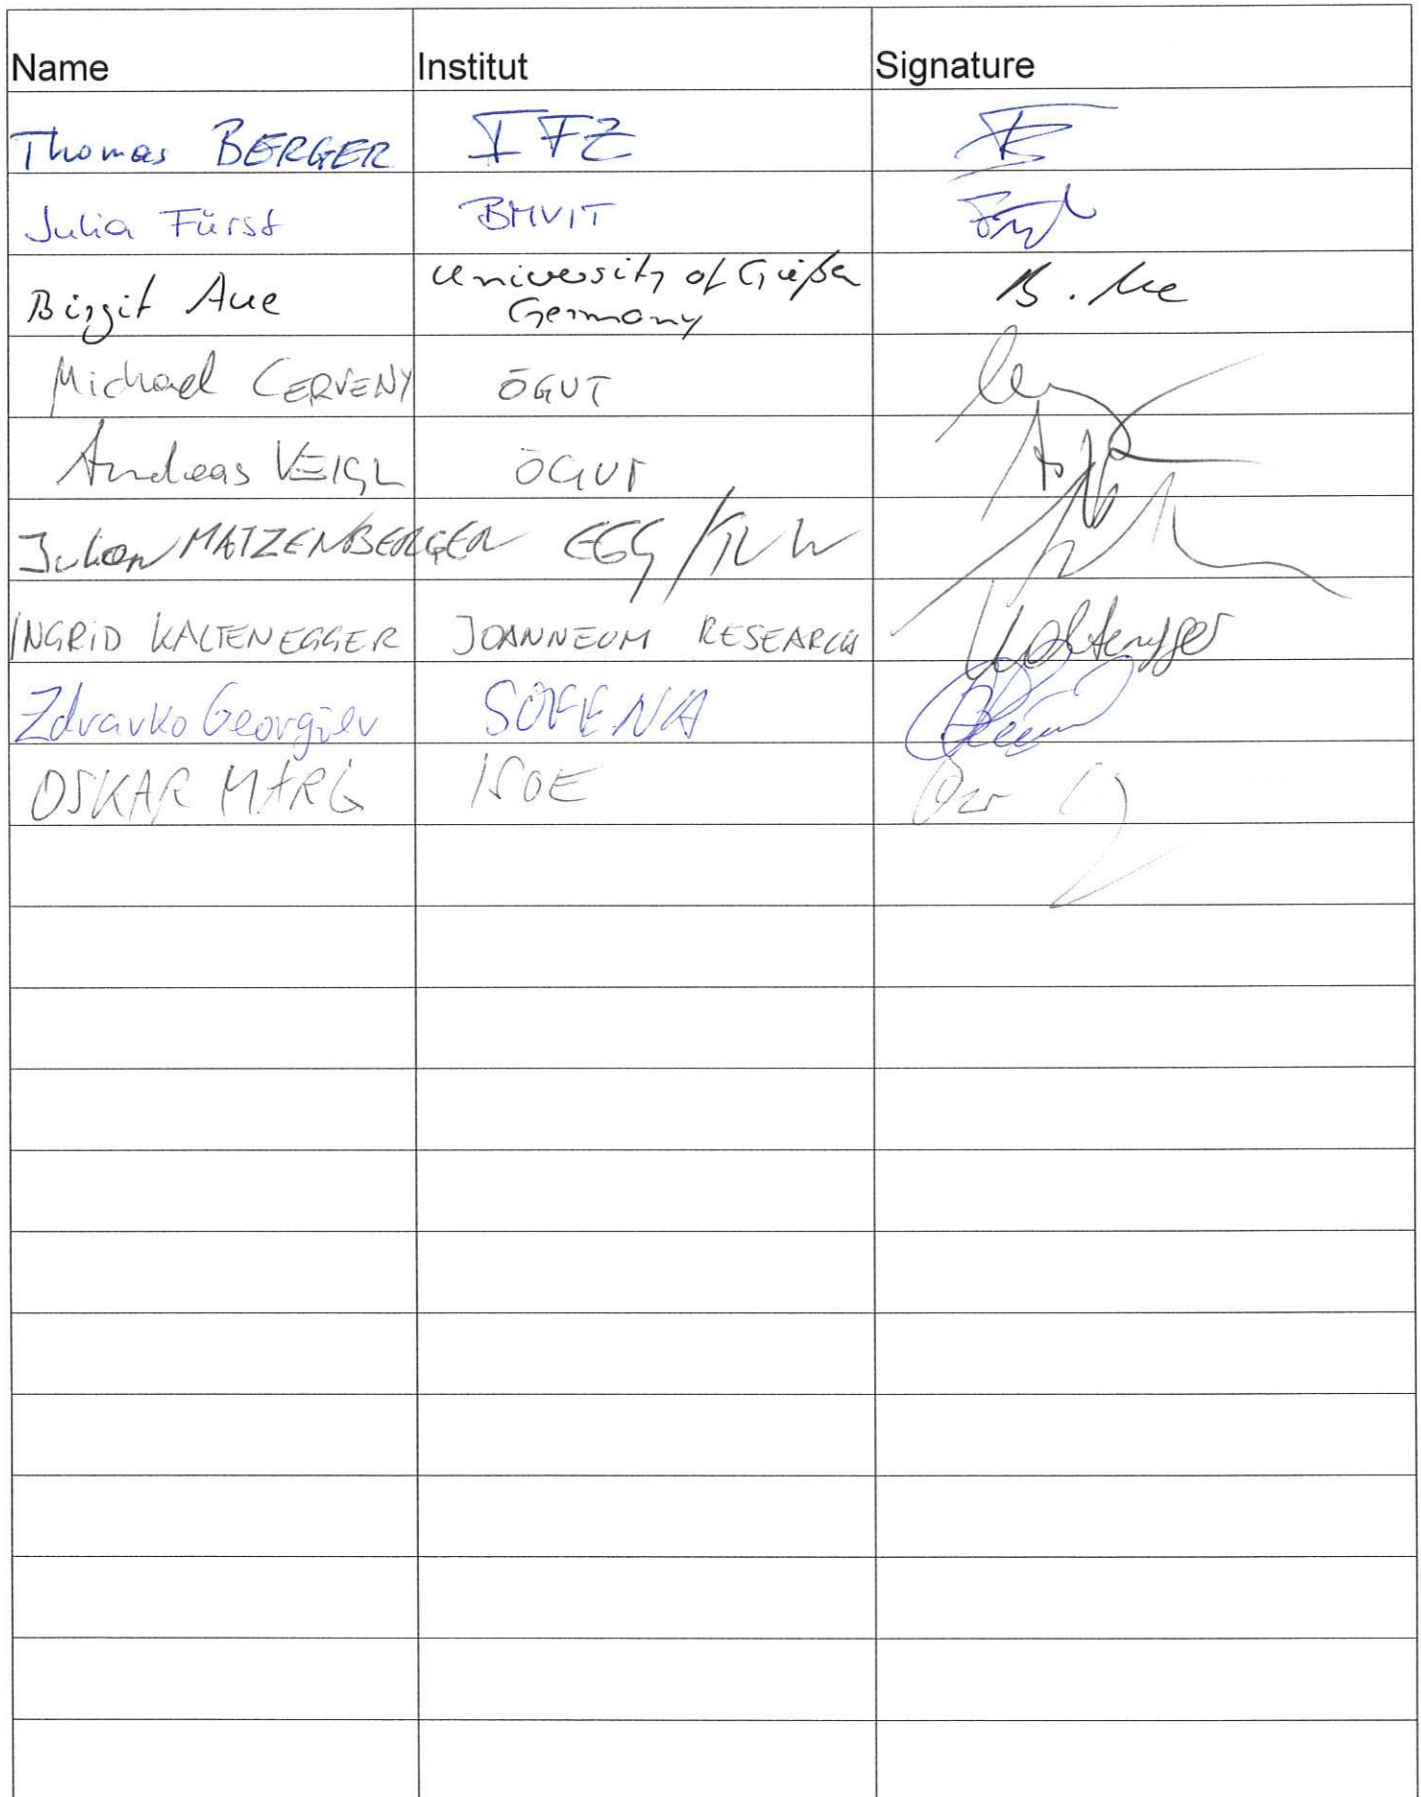 Name Institut Signature
Thomas BERGER IFZ
Julia Fürst BMVIT
Birgit Aue University of Gießen B. Aue
Germany
Michael CERVENY ÖGUT
Andreas VEIGL ÖGUT
Julian MATZENBERGER EEG/TU W
INGRID KALTENEGGER JOANNEUM RESEARCH Kaltenegger
Zdravko Georgiev SOFENA
OSKAR MARG ISOE